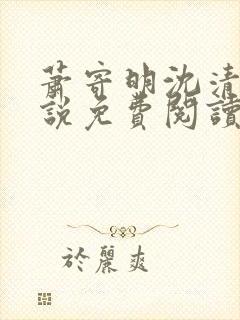 蕭寄明沈清
說免費閱讀
於麗爽